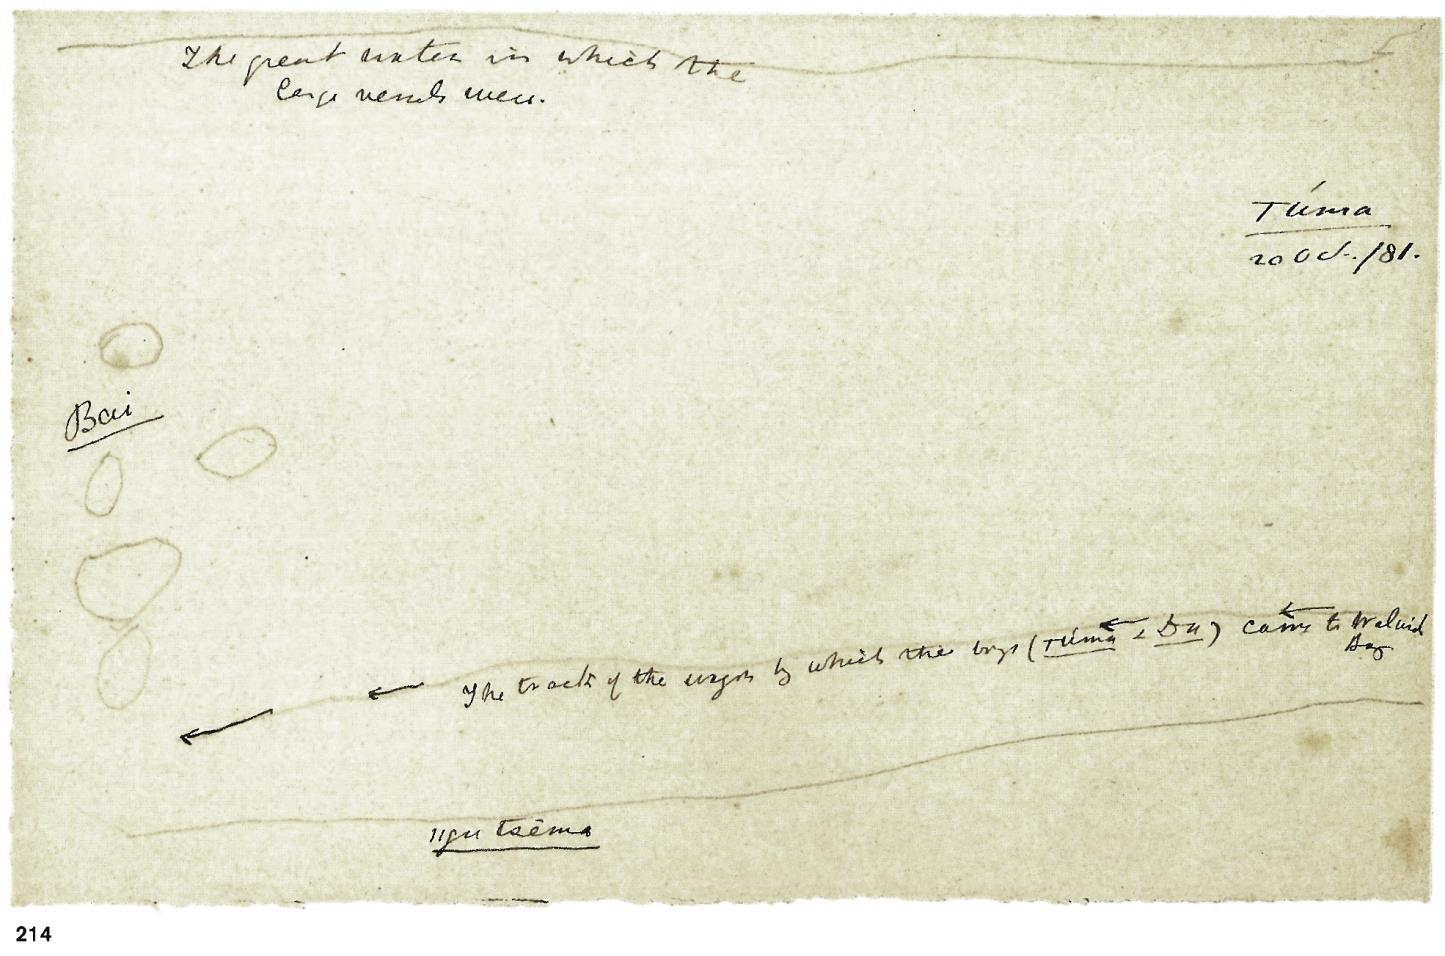 The great water in which the
large vessels were.
Túma
20 Oct./81.
Bai
The track of the wagon by which the boys (Túma & Da) came to Walvich
Bay
tsēma
214